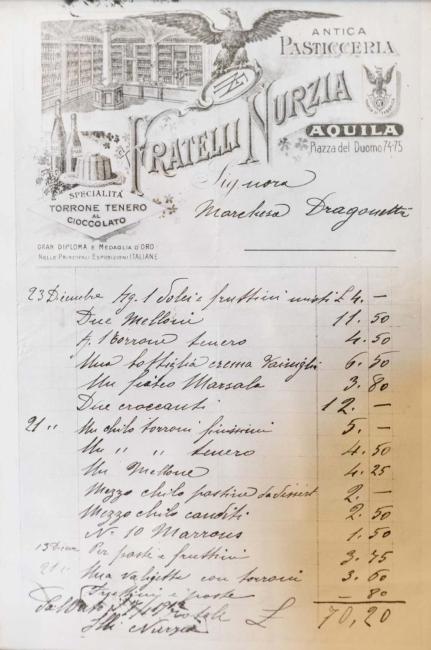 ANTICA
PASTICCERIA
FRATELLI NURZIA
AQUILA
Piazza del Duomo 74-75
SPECIALITÀ
TORRONE TENERO
AL
CIOCCOLATO
GRAN DIPLOMA E MEDAGLIA D'ORO
NELLE PRINCIPALI ESPOSIZIONI ITALIANE
Signora
Marchesa Dragonetti
23 Dicembre Kg. 1 Dolci e fruttini misti £ 4. —
Due Melloni 11. 50
K. 1 Torrone tenero 4. 50
Una bottiglia crema 6. 50
Un fiasco Marsala 3. 80
Due croccanti 12. —
21 " Un chilo torroni finissimi 5. —
Un " " tenero 4. 50
Un Mellone 4. 25
Mezzo chilo pastine da dissert 2. —
Mezzo chilo canditi 2. 50
N. 10 Marrons 1. 50
Per paste e fruttini 3. 75
21 " Una valigetta con torroni 3. 60
e paste — 80
Totale £ 70, 20
F.lli Nurzia